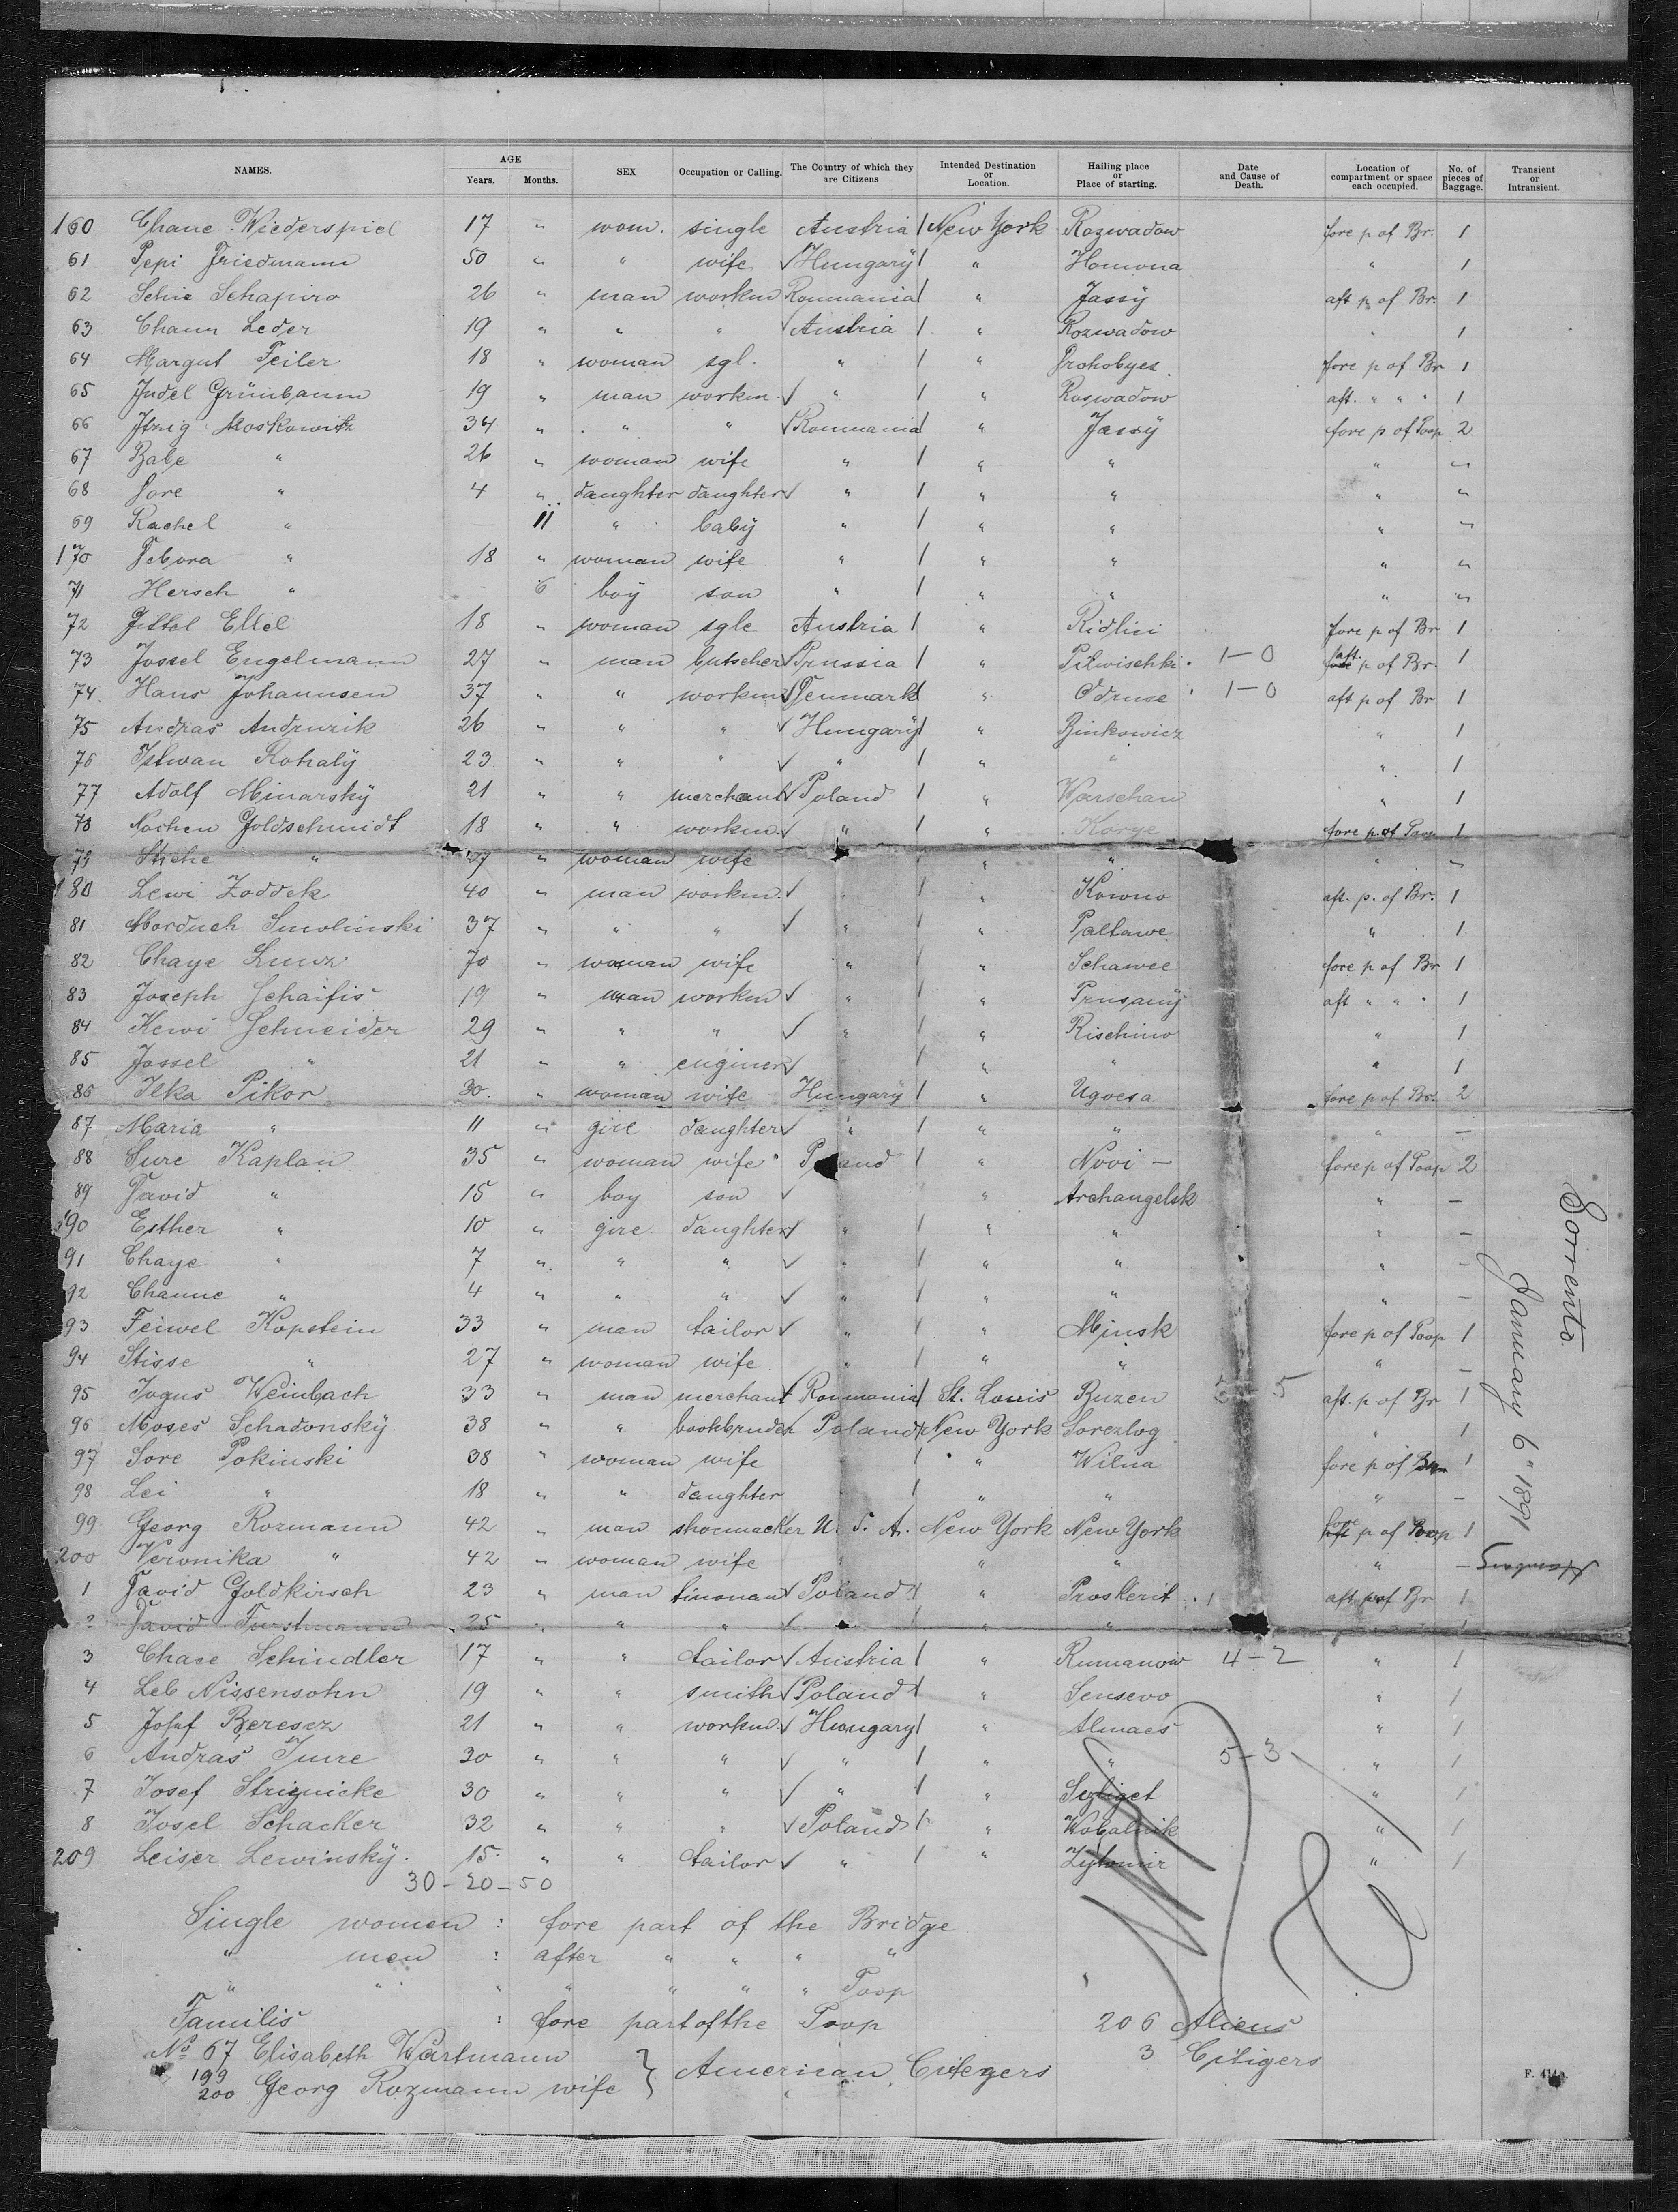 NAMES. AGE Years. Months. SEX Occupation or Calling. The Country of which they are Citizens Intended Destination or Location. Hailing place or Place of starting. Date and Cause of Death. Location of compartment or space each occupied. No. of pieces of Baggage. Transient or Intransient.
160 Chane Wiederspiel 17 " wom. single Austria / New York Rozwadow fore p of Br. 1
61 Pepi Friedmann 50 " " wife √ Hungary / " Homona " 1
62 Schie Schapiro 26 " man workm Roumania / " Jassy aft p of Br. 1
63 Chaim Leder 19 " " " √ Austria / " Rozwadow " 1
64 Margut Feiler 18 " woman sgl. " / " Drohobyes fore p of Br 1
65 Judel Grünbaum 19 " man workm. √ " / " Roswadow aft. " " " 1
66 Itzig Moskowitz 34 " " " √ Roumania / " Jassy fore p of Poop 2
67 Bale " 26 " woman wife " / " " " "
68 Sore " 4 " daughter daughter √ " / " " " "
69 Rachel " 11 " baby " / " " " "
170 Debora " 18 " woman wife " / " " " "
71 Hersch " 6 boy son " / " " " "
72 Gittal Ellel 18 " woman sgle Austria / " Ridlini fore p of Br 1
73 Jossel Engelmann 27 " man butscher √ Prussia / " Pilwischki. 1-0 aft. p of Br. 1
74. Hans Johannsen 37 " " workm √ Denmark / " Odruse 1-0 aft p of Br 1
75 Andras Andrurik 26 " " " √ Hungary / " Binkowicz " 1
76 Istwan Rohaly 23 " " " √ " / " " " 1
77 Adolf Minarsky 21 " " merchant √ Poland / " Warschau " 1
78 Nochen Goldschmidt 18 " " workm. √ " / " Korge fore p. of Poop 1
79 " " woman wife / " " " "
180 Lewi Zoddek 40 " man workm. √ " / " Kowno aft. p. of Br. 1
81 Morduch Smolinski 37 " " " √ " / " Paltawe " 1
82 Chaye 70 " woman wife " / " Schawee fore p of Br 1
83 Joseph Schaifis 19 " man workm √ " / " Prusany aft " " " 1
84 Kewi Schneider 29 " " " √ " / " Rischino " 1
85 Jossel " 21 " " enginer √ / " " " 1
86 Ilka Pikor 30. " woman wife Hungary / " Ugocsa fore p of Br. 2
87 Maria " 11 " girl daughter √ " / " " " —
88 Sure Kaplan 35 " woman wife Poland / " Novi — fore p of Poop 2
89 David " 15 " boy son √ " Archangelsk " —
190 Esther " 10 " girl daughter √ " / " " " —
91 Chaye " 7 " " " √ " / " " " —
92 Channe " 4 " " " √ " / " " " —
93 Feiwel Kopstein 33 " man tailor √ " / " Minsk fore p of Poop 1
94 Stisse " 27 " woman wife " / " " " —
95 Jogus Weinbach 33 " man merchant Roumania / St. Louis Buzen 5 aft. p of Br 1
96 Moses Schadonsky 38 " " bookbruder Poland / New York Sorezlog " 1
97 Sore Pokinski 38 " woman wife / " Wilna fore p of Br 1
98 Lei " 18 " " daughter / " " " —
99 Georg Rozmann 42 " man shoemacker U. S. A. New York New York fore p of Poop 1
200 Veronika " 42 " woman wife " " " " —
1 David Goldkirsch 23 " man tinsman √ Poland / " Proskerit . 1 aft p of Br 1
2 David Furstmann 25 " " " √ " / " " " 1
3 Chaee Schindler 17 " " tailor √ Austria / " Rumanow 4-2 " 1
4 Leb Nissensohn 19 " " smith √ Poland / " Sensevo " 1
5 Josef Berescz 21 " " workm. √ Hungary / " Almaes " 1
6 Andras Imre 20 " " " √ " / " " 5-3 " 1
7 Josef Strignicke 30 " " " √ " / " Szliget " 1
8 Josel Schacker 32 " " " √ Poland / " Wobalnik " 1
209 Leiser Lewinsky. 15. " " tailor √ " / " Zytomir " 1
30-20-50
Single women : fore part of the Bridge
" men : after " " " "
" " " " " " " Poop
Familis : fore part of the Poop 206 Aliens
No 67 Elisabeth Wartmann 3 Citigers
199 200 Georg Rozmann wife } American Citegers
F. 414a.
Sorrento.
January 6" 1891
Hamburg